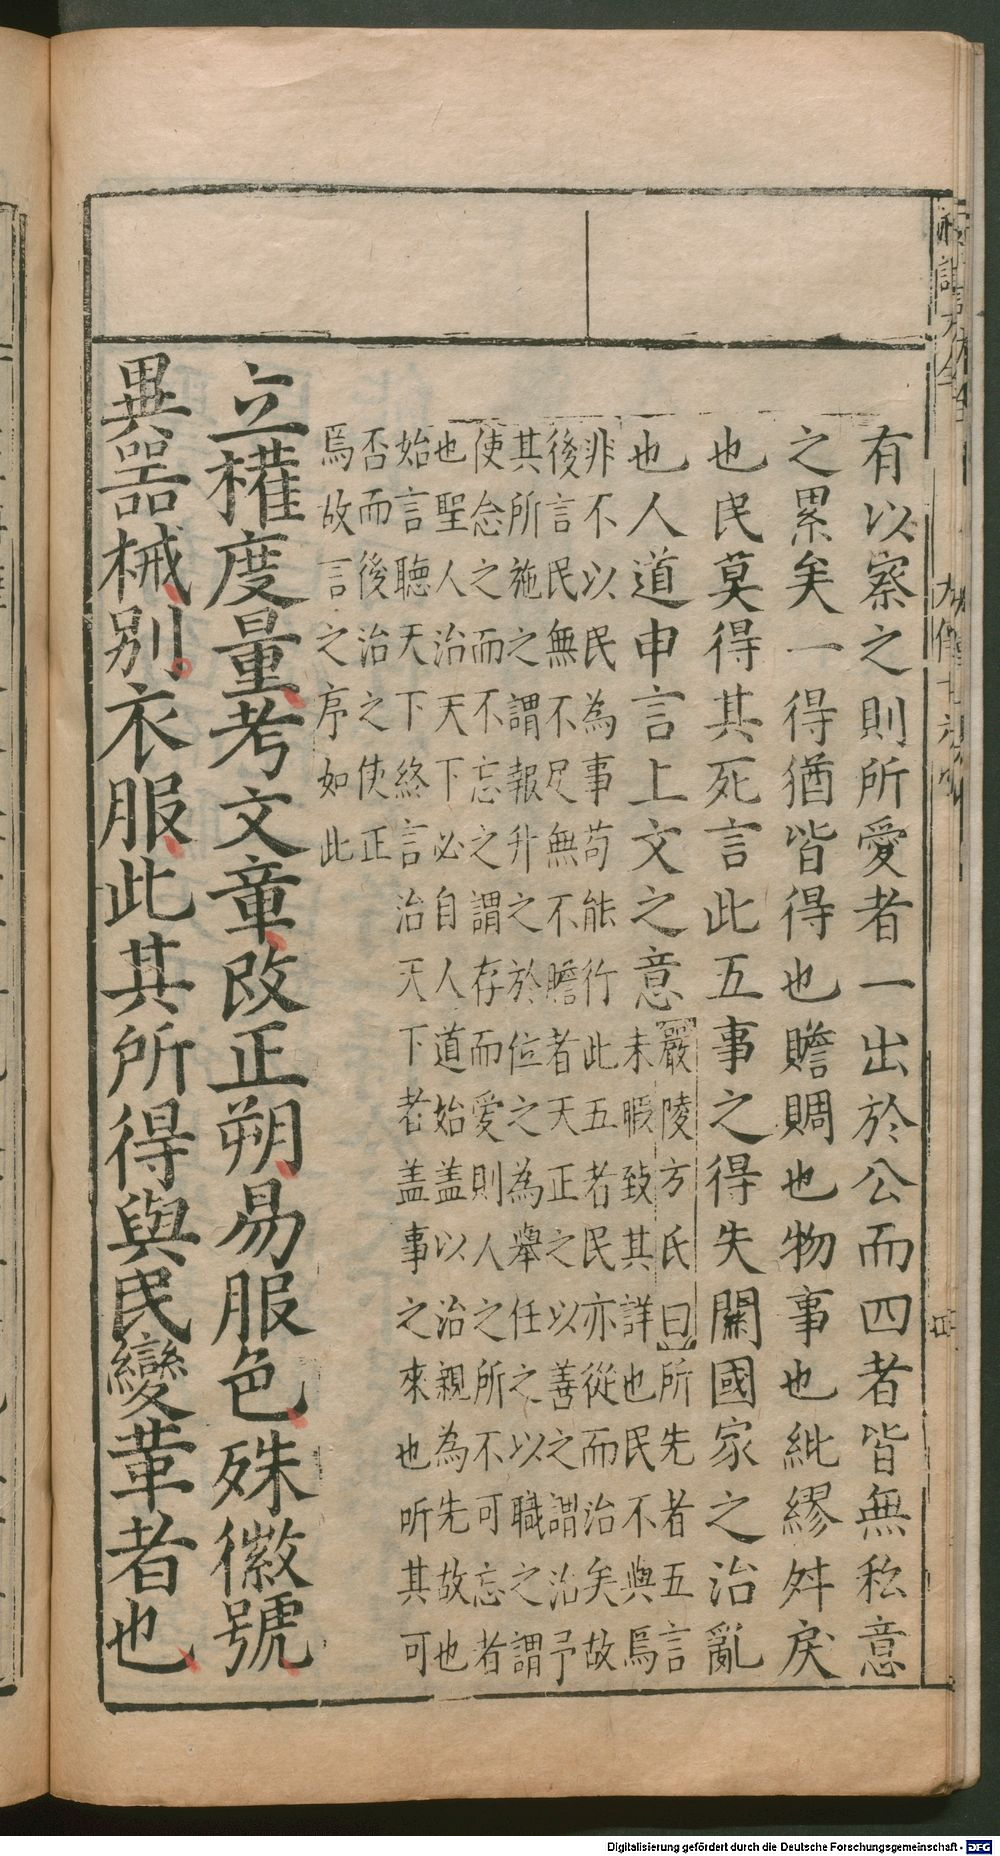 有以察之則所愛者一出於公而四者皆無私意
之累矣一得猶皆得也贍賙也物事也紕繆舛戾
也民莫得其死言此五事之得失關國家之治亂
也人道申言上文之意
嚴陵方氏曰所先者五言
未暇致其詳也民不與焉
非不以民為事苟能行此五者民亦從而治矣故
後言民無不足無不贍者天正之以善之謂治予
其所施之謂報升之於位之為舉任之以職之謂
使念之而不忘之謂存而愛則人之所不可忘者
也聖人治天下必自人道始蓋以治親為先故也
始言聽天下終言治天下者盖事之來也听其可
否而後治之使正
焉故言之序如此
立權度量考文章改正朔易服色殊徽號
異器械別衣服此其所得與民變革者也
Digitalisierung gefördert durch die Deutsche Forschungsgemeinschaft - DFG